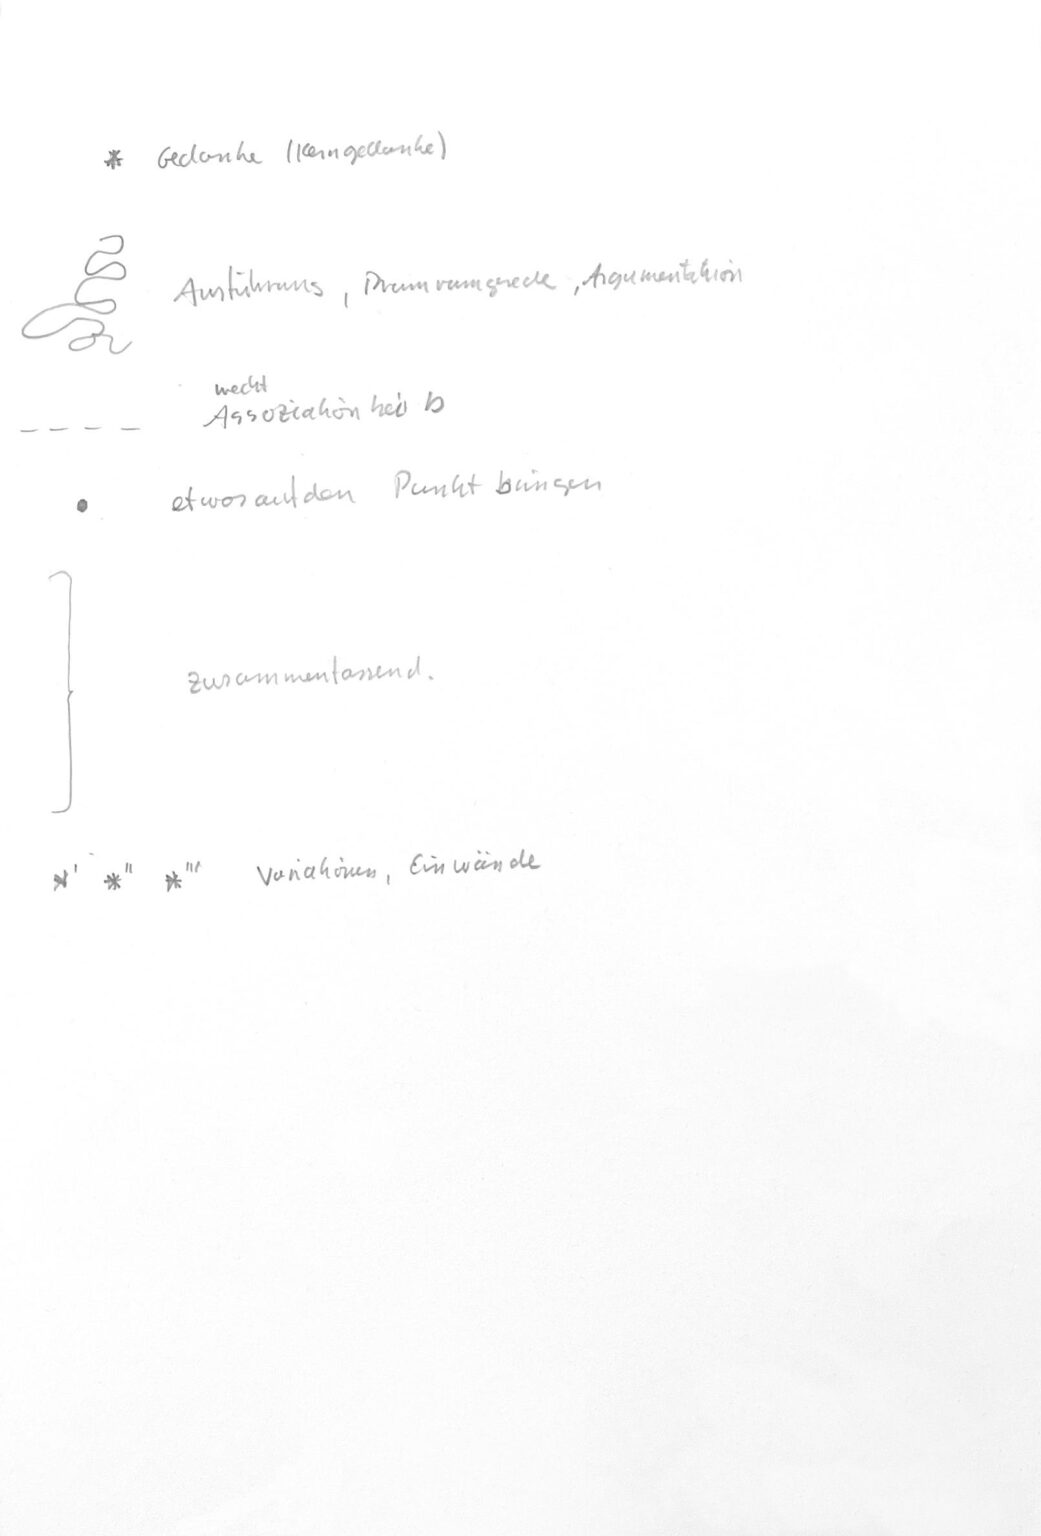 * Gedanke (Kerngedanke)
Ausführung, Drumrumgerede, Argumentation
weckt
Assoziation bei b
etwas auf den Punkt bringen
zusammenfassend.
*' *" *"' Variationen, Einwände